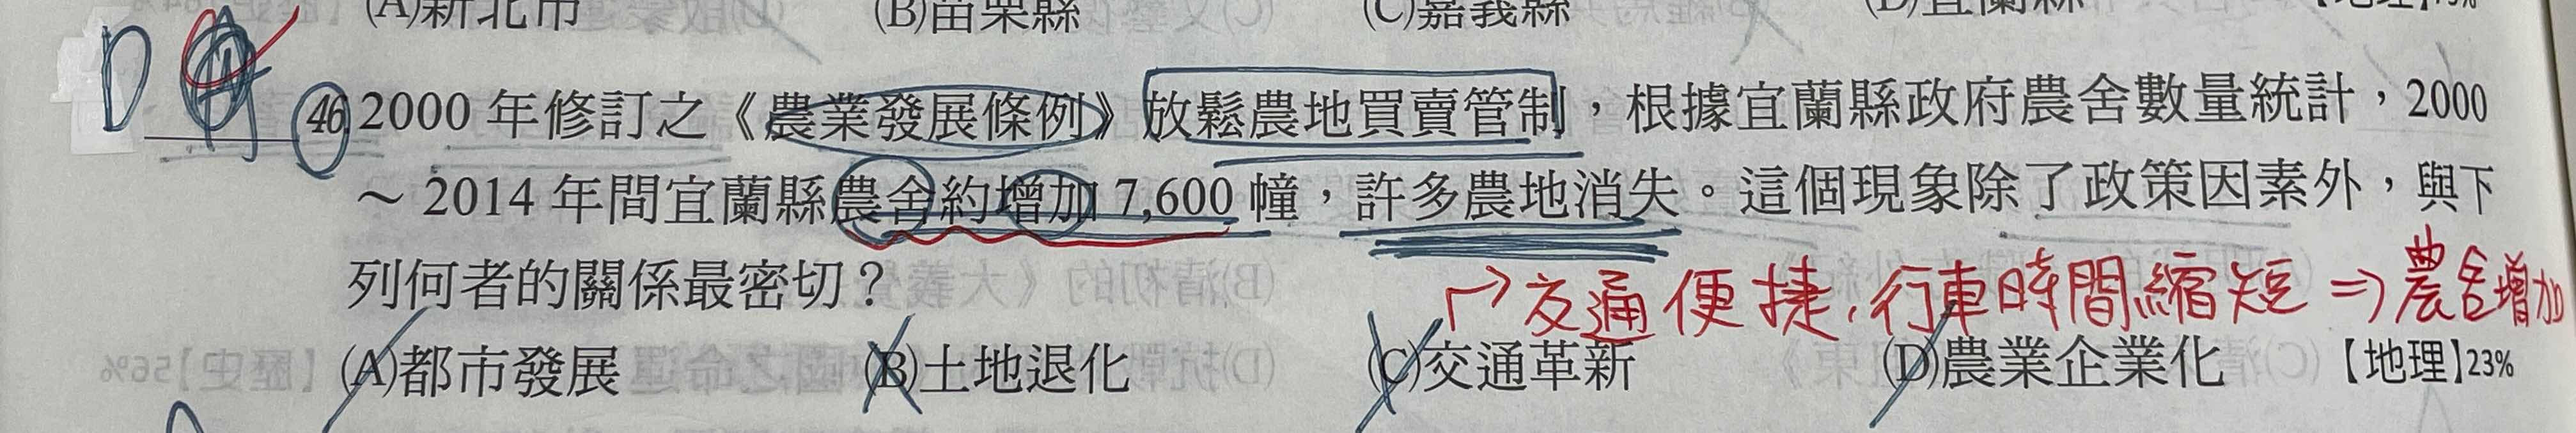 (A)新北市 (B)苗栗縣 (C)嘉義縣 (D)宜蘭縣 【地理】
D
46. 2000 年修訂之《農業發展條例》放鬆農地買賣管制，根據宜蘭縣政府農舍數量統計，2000
～ 2014 年間宜蘭縣農舍約增加 7,600 幢，許多農地消失。這個現象除了政策因素外，與下
列何者的關係最密切？
→交通便捷，行車時間縮短 ⇒ 農舍增加
(A)都市發展 (B)土地退化 (C)交通革新 (D)農業企業化 【地理】23%